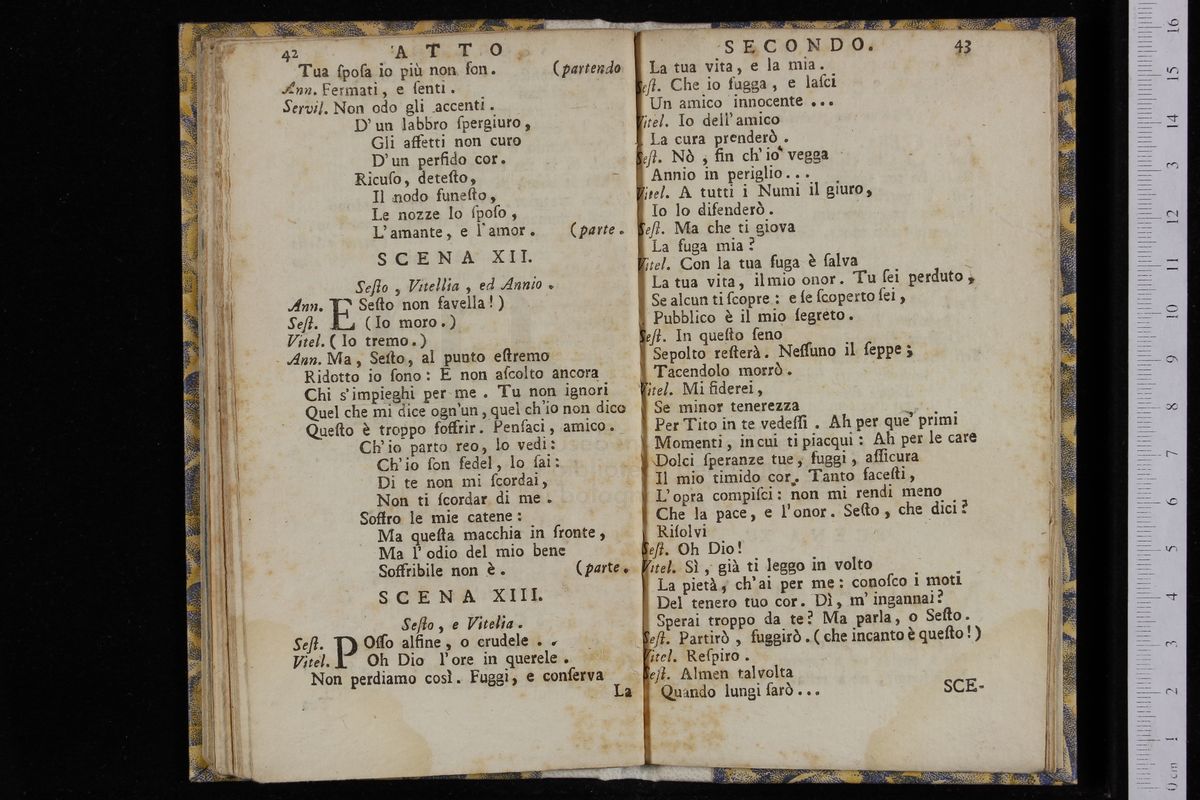 42 ATTO
Tua ſpoſa io più non ſon. (partendo
Ann. Fermati, e ſenti.
Servil. Non odo gli accenti.
D'un labbro ſpergiuro,
Gli affetti non curo
D'un perfido cor.
Ricuſo, deteſto,
Il nodo funeſto,
Le nozze lo ſpoſo,
L'amante, e l'amor. (parte.
SCENA XII.
Seſto, Vitellia, ed Annio.
Ann. E Seſto non favella!)
Seſt. (Io moro.)
Vitel. (Io tremo.)
Ann. Ma, Seſto, al punto eſtremo
Ridotto io ſono: E non aſcolto ancora
Chi s'impieghi per me. Tu non ignori
Quel che mi dice ogn'un, quel ch'io non dico
Queſto è troppo ſoffrir. Penſaci, amico.
Ch'io parto reo, lo vedi:
Ch'io ſon fedel, lo ſai:
Di te non mi ſcordai,
Non ti ſcordar di me.
Soffro le mie catene:
Ma queſta macchia in fronte,
Ma l'odio del mio bene
Soffribile non è. (parte.
SCENA XIII.
Seſto, e Vitelia.
Seſt. POſſo alfine, o crudele . .
Vitel. Oh Dio l'ore in querele.
Non perdiamo così. Fuggi, e conſerva
La
SECONDO. 43
La tua vita, e la mia.
Seſt. Che io fugga, e laſci
Un amico innocente ...
Vitel. Io dell'amico
La cura prenderò.
Seſt. Nò, fin ch'io vegga
Annio in periglio...
Vitel. A tutti i Numi il giuro,
Io lo difenderò.
Seſt. Ma che ti giova
La fuga mia?
Vitel. Con la tua fuga è ſalva
La tua vita, il mio onor. Tu ſei perduto,
Se alcun ti ſcopre: e ſe ſcoperto ſei,
Pubblico è il mio ſegreto.
Seſt. In queſto ſeno
Sepolto reſterà. Neſſuno il ſeppe;
Tacendolo morrò.
Vitel. Mi fiderei,
Se minor tenerezza
Per Tito in te vedeſſi. Ah per que' primi
Momenti, in cui ti piacqui: Ah per le care
Dolci ſperanze tue, fuggi, afficura
Il mio timido cor. Tanto faceſti,
L'opra compiſci: non mi rendi meno
Che la pace, e l'onor. Seſto, che dici?
Riſolvi
Seſt. Oh Dio!
Vitel. Sì, già ti leggo in volto
La pietà, ch'ai per me: conoſco i moti
Del tenero tuo cor. Dì, m'ingannai?
Sperai troppo da te? Ma parla, o Seſto.
Seſt. Partirò, fuggirò. (che incanto è queſto!)
Vitel. Reſpiro.
Seſt. Almen talvolta
Quando lungi ſarò...
SCE-
0 cm 1 2 3 4 5 6 7 8 9 10 11 12 13 14 15 16